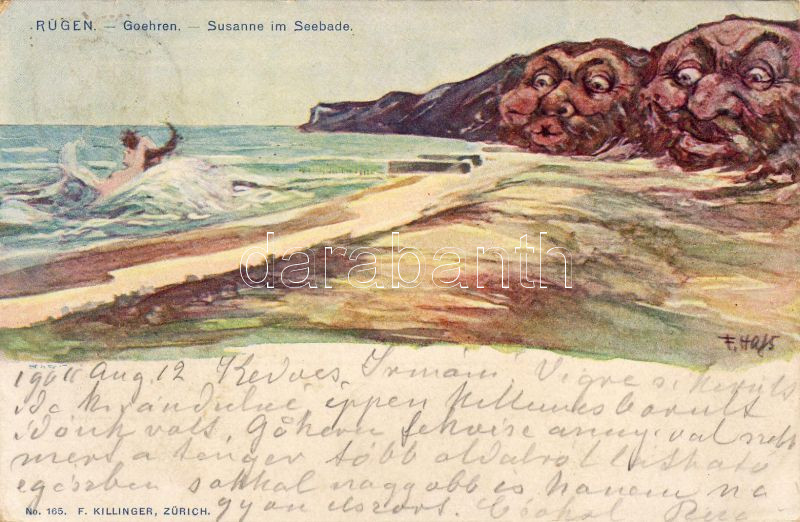 RÜGEN. — Goehren. — Susanne im Seebade.
darabanth
F. Hass
Aug. 12 Kedves Irmám Végre si került
ide kirándulni éppen kellemes borult
időnk volt. Göhren fekvése annyival szebb
mert a tenger több oldalról látható
egészben sokkal nagyobb is hanem na
gyon elszórt.
No. 165. F. KILLINGER, ZÜRICH.